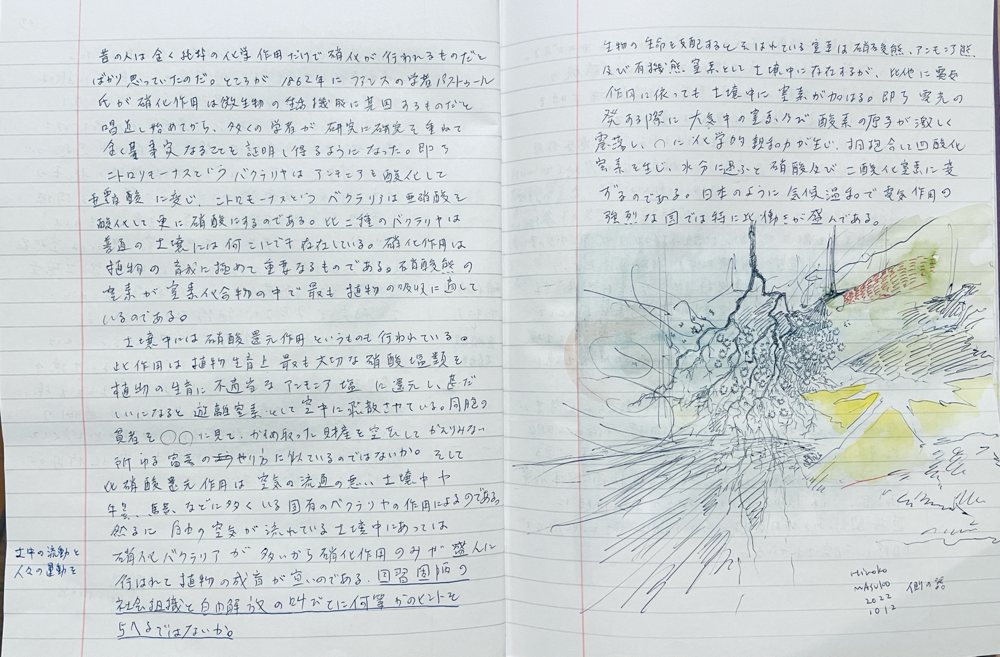 昔の人は全く純粋の化学作用だけで硝化が行われるものだと
ばかり思っていたのだ。ところが1862年にフランスの学者パストゥール
氏が硝化作用は微生物の生活機能に基因するものだと
唱道し始めてから、多くの学者が研究に研究を重ねて
全く事実なることを証明し得るようになった。即ち
ニトロソモーナスというバクテリヤはアンモニアを酸化して
亜硝酸に変じ、ニトロモーナスというバクテリヤは亜硝酸を
酸化して更に硝酸にするのである。此二種のバクテリヤは
普通の土壌には何こにでも存在している。硝化作用は
植物の育成に極めて重要なるものである。硝酸態の
窒素が窒素化合物の中で最も植物の吸収に適して
いるのである。
土壌中には硝酸還元作用というものも行われている。
此作用は植物生育上最も大切な硝酸塩類を
植物の生育に不適当なアンモニア塩に還元し、甚だ
しいになると遊離窒素として空中に飛散させている。同胞の
貧者を〇〇に見て、かすめ取った財産を空しくしてかえりみない
所謂富豪のやり方に似ているのではないか。そして
此硝酸還元作用は空気の流通の悪い土壌中や
牛糞、馬糞、などに多くいる固有のバクテリヤの作用によるのである。
然るに自由の空気が流れている土壌中にあっては
硝化バクテリアが多いから硝化作用のみが盛んに
行はれて植物の成育が宜いのである。因習固陋の
社会組織と自由解放の叫びとに何等かのヒントを
与へるではないか。
土中の流動と
人々の運動を
生物の生命を支配するとも云はれている窒素は硝酸態、アンモニア態
及び有機態窒素として土壌中に存在するが、此他に電気
作用に依っても土壌中に窒素が加はる。即ち電光の
発する際に大気中の窒素及び酸素の原子が激しく
震蕩し、〇に化学的親和力が生じ、抱合して四酸化
窒素を生じ、水分に遇ふと硝酸及び二酸化窒素に変
ずるのである。日本のように気候温和で電気作用の
強烈な国では特に此働きが盛んである。
Hiroko
MASUKO
2022
10.12